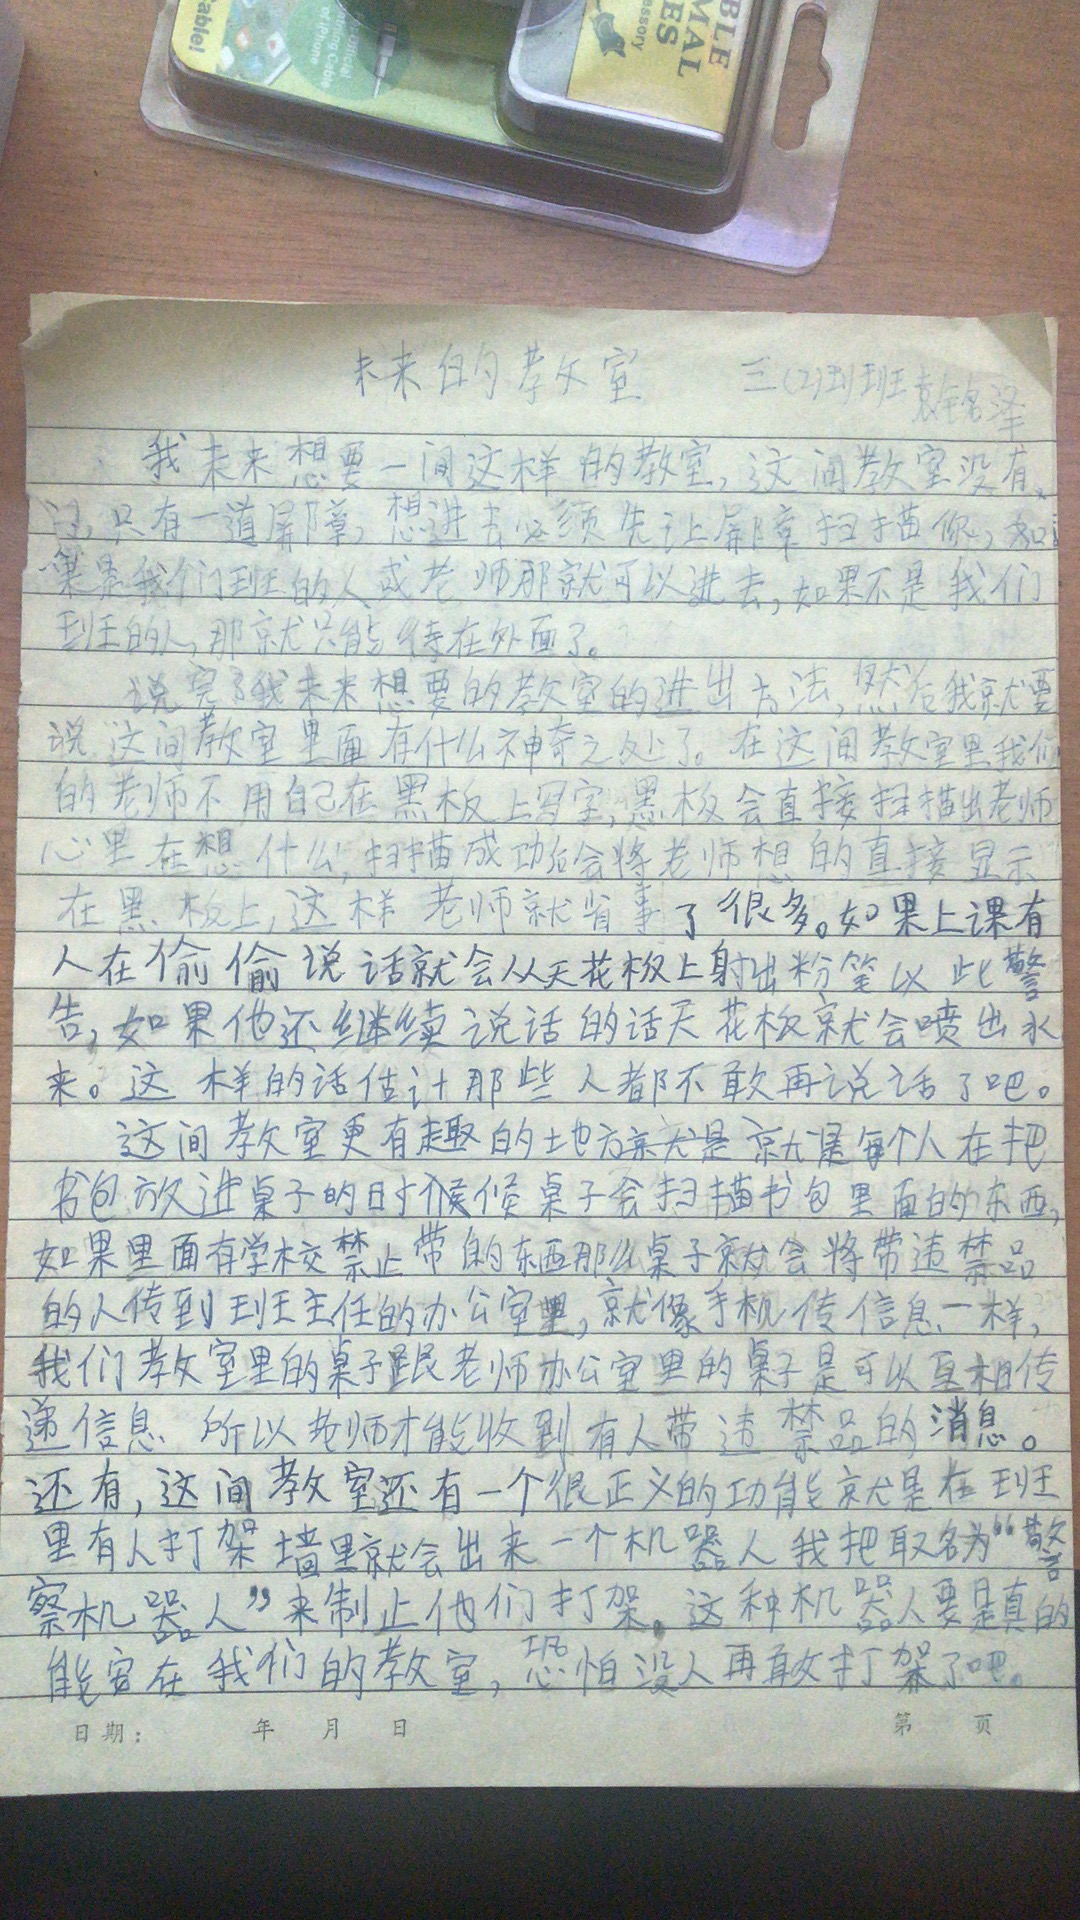 Cable!
Official
Charging Cable
of iPhone
BLE
MAL
ES
essory
未来的教室 三(2)班 袁铭泽
我未来想要一间这样的教室,这间教室没有
门,只有一道屏障,想进去必须先让屏障扫描你,如
果是我们班的人或老师那就可以进去,如果不是我们
班的人,那就只能待在外面了。
说完了我未来想要的教室的进出方法,然后我就要
说这间教室里面有什么神奇之处了。在这间教室里我们
的老师不用自己在黑板上写字,黑板会直接扫描出老师
心里在想什么,扫描成功后会将老师想的直接显示
在黑板上,这样老师就省事了很多。如果上课有
人在偷偷说话就会从天花板上射出粉笔以此警
告,如果他还继续说话的话天花板就会喷出水
来。这样的话估计那些人都不敢再说话了吧。
这间教室更有趣的地方就是就是每个人在把
书包放进桌子的时候候桌子会扫描书包里面的东西,
如果里面有学校禁止带的东西那么桌子就会将带违禁品
的人传到班主任的办公室里,就像手机传信息一样,
我们教室里的桌子跟老师办公室里的桌子是可以互相传
递信息 所以老师才能收到有人带违禁品的消息。
还有,这间教室还有一个很正义的功能就是在班
里有人打架墙里就会出来一个机器人我把取名为“警
察机器人”来制止他们打架。这种机器人要是真的
能安在我们的教室,恐怕没人再敢打架了吧。
日期: 年 月 日 第 页